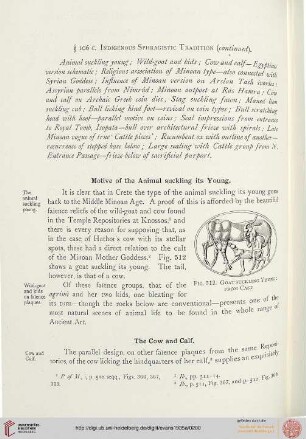 § 106 C. Indigenous Sphragistic Tradition (continued).
Animal suckling young; Wild-goat and kids; Cow and calf—Egyptian
version schematic; Religious association of Minoan type—also connected with
Syrian Goddess; Influence of Minoan version on Arslan Tash ivories;
Assyrian parallels from Nimrûd; Minoan outpost at Ras Hamra; Cow
and calf on Archaic Greek coin dies; Stag suckling fawn;
cub; Bull licking hind foot—revival on coin types; Bull scratching
head with hoof—parallel motive on coins; Seal impressions from entrance
to Royal Tomb, Isopata—bull over architectural frieze with spirals; Late
Minoan vogue of true 'Cattle piece'; Recumbent ox with outline of another—
cameraeo of stepped base below; Large sealing with Cattle group from N.
Entrance Passage—frieze below of sacrificial purport.
Motive of the Animal suckling its Young.
The
animal
suckling
young.
It is clear that in Crete the type of the animal suckling its young goes
back to the Middle Minoan Age. A proof of this is afforded by the beautiful
faience reliefs of the wild-goat and cow found
in the Temple Repositories at Knossos,¹ and
there is every reason for supposing that, as
in the case of Hathor's cow with its stellar
spots, they had a direct relation to the cult
of the Minoan Mother Goddess.² Fig. 512
shows a goat suckling its young. The tail,
however, is that of a cow.
Fig. 512. Goat suckling Young:
Wild-goat
and kids
on faience
plaques.
Of these faience groups, that of the
agrimi and her two kids, one bleating for
its turn—though the rocks below are conventional—presents one of the
most natural scenes of animal life to be found in the whole range of
Ancient Art.
The Cow and Calf.
Cow and
Calf.
The parallel design on other faience plaques from the same Repositories,
of the cow licking the hindquarters of her calf,³ supplies an exquisitely
¹ P. of M., i, p. 510 seqq.,
² Ib., pp. 511–14.
http://digi.ub.uni-heidelberg.de/diglit/evans1935a/0200